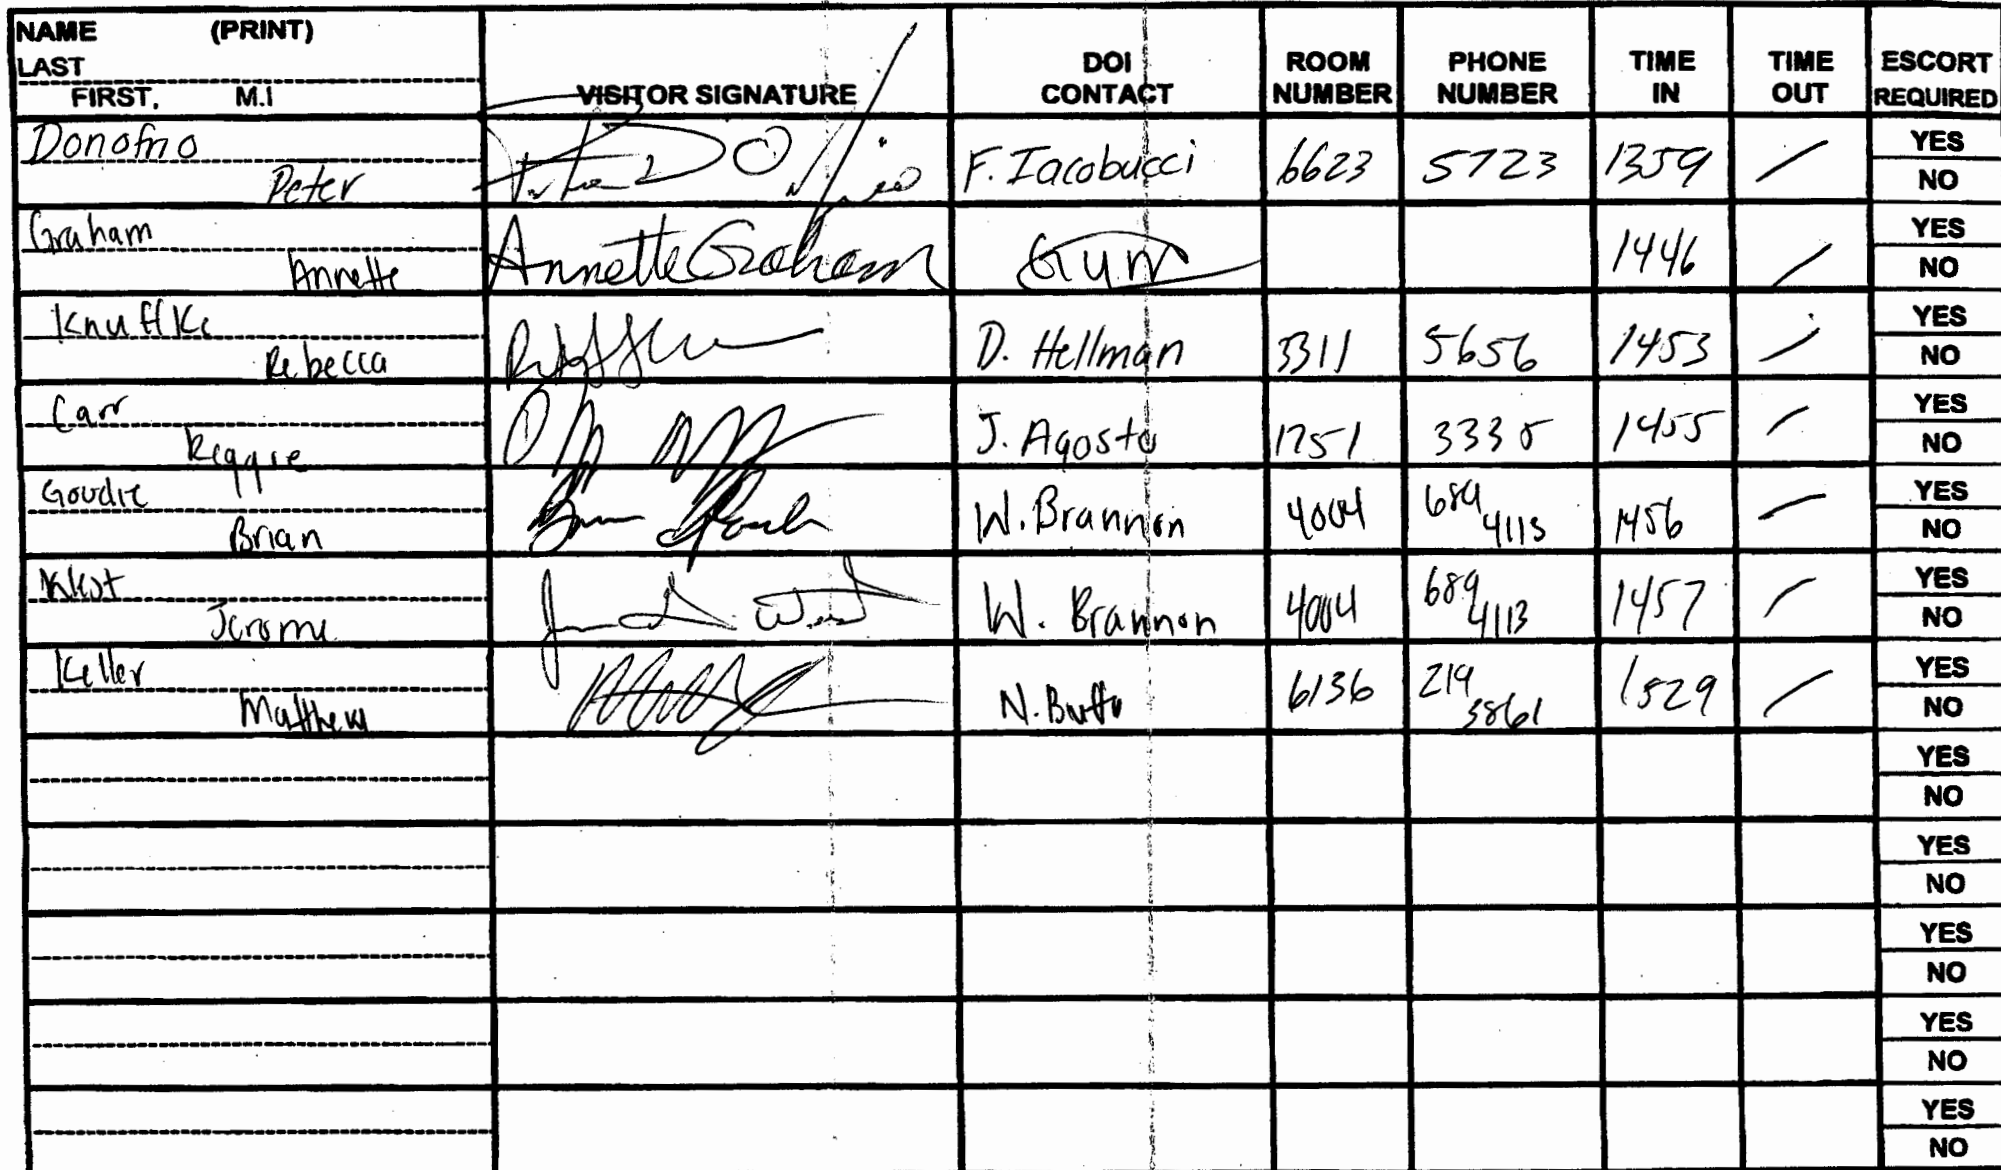 NAME (PRINT)
LAST
FIRST, M.I
VISITOR SIGNATURE
DOI CONTACT
ROOM NUMBER
PHONE NUMBER
TIME IN
TIME OUT
ESCORT REQUIRED
Donofrio
Peter
F. Iacobucci 6623 5723 1359 /
YES
NO
Graham
Annette
Annette Graham Gym 1446 /
YES
NO
Knuffke
Rebecca
D. Hellman 3311 5656 1453 /
YES
NO
Carr
Reggie
J. Agosto 1751 3335 1455 /
YES
NO
Goudie
Brian
W. Brannon 4004 689 4113 1456 /
YES
NO
Jerome
W. Brannon 4004 689 4113 1457 /
YES
NO
Keller
Matthew
N. 6136 219 3861 1529 /
YES
NO
YES
NO
YES
NO
YES
NO
YES
NO
YES
NO